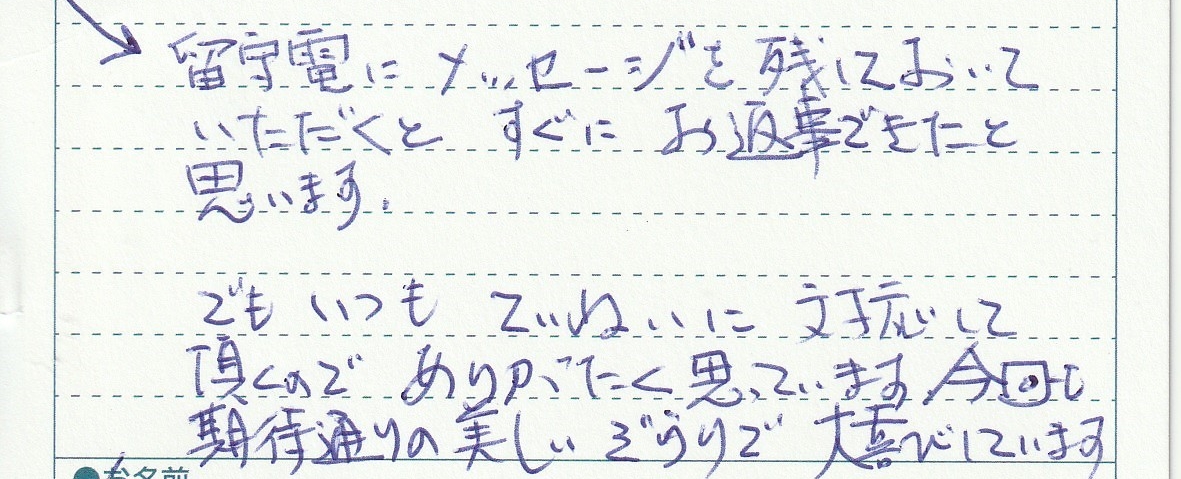 留守電に メッセージを 残しておいて
いただくと すぐに お返事できたと
思います.
でも いつも ていねいに 対応して
頂くので ありがたく思っています 今回も
期待通りの 美しい ぞうりで 大喜びしています
●お名前